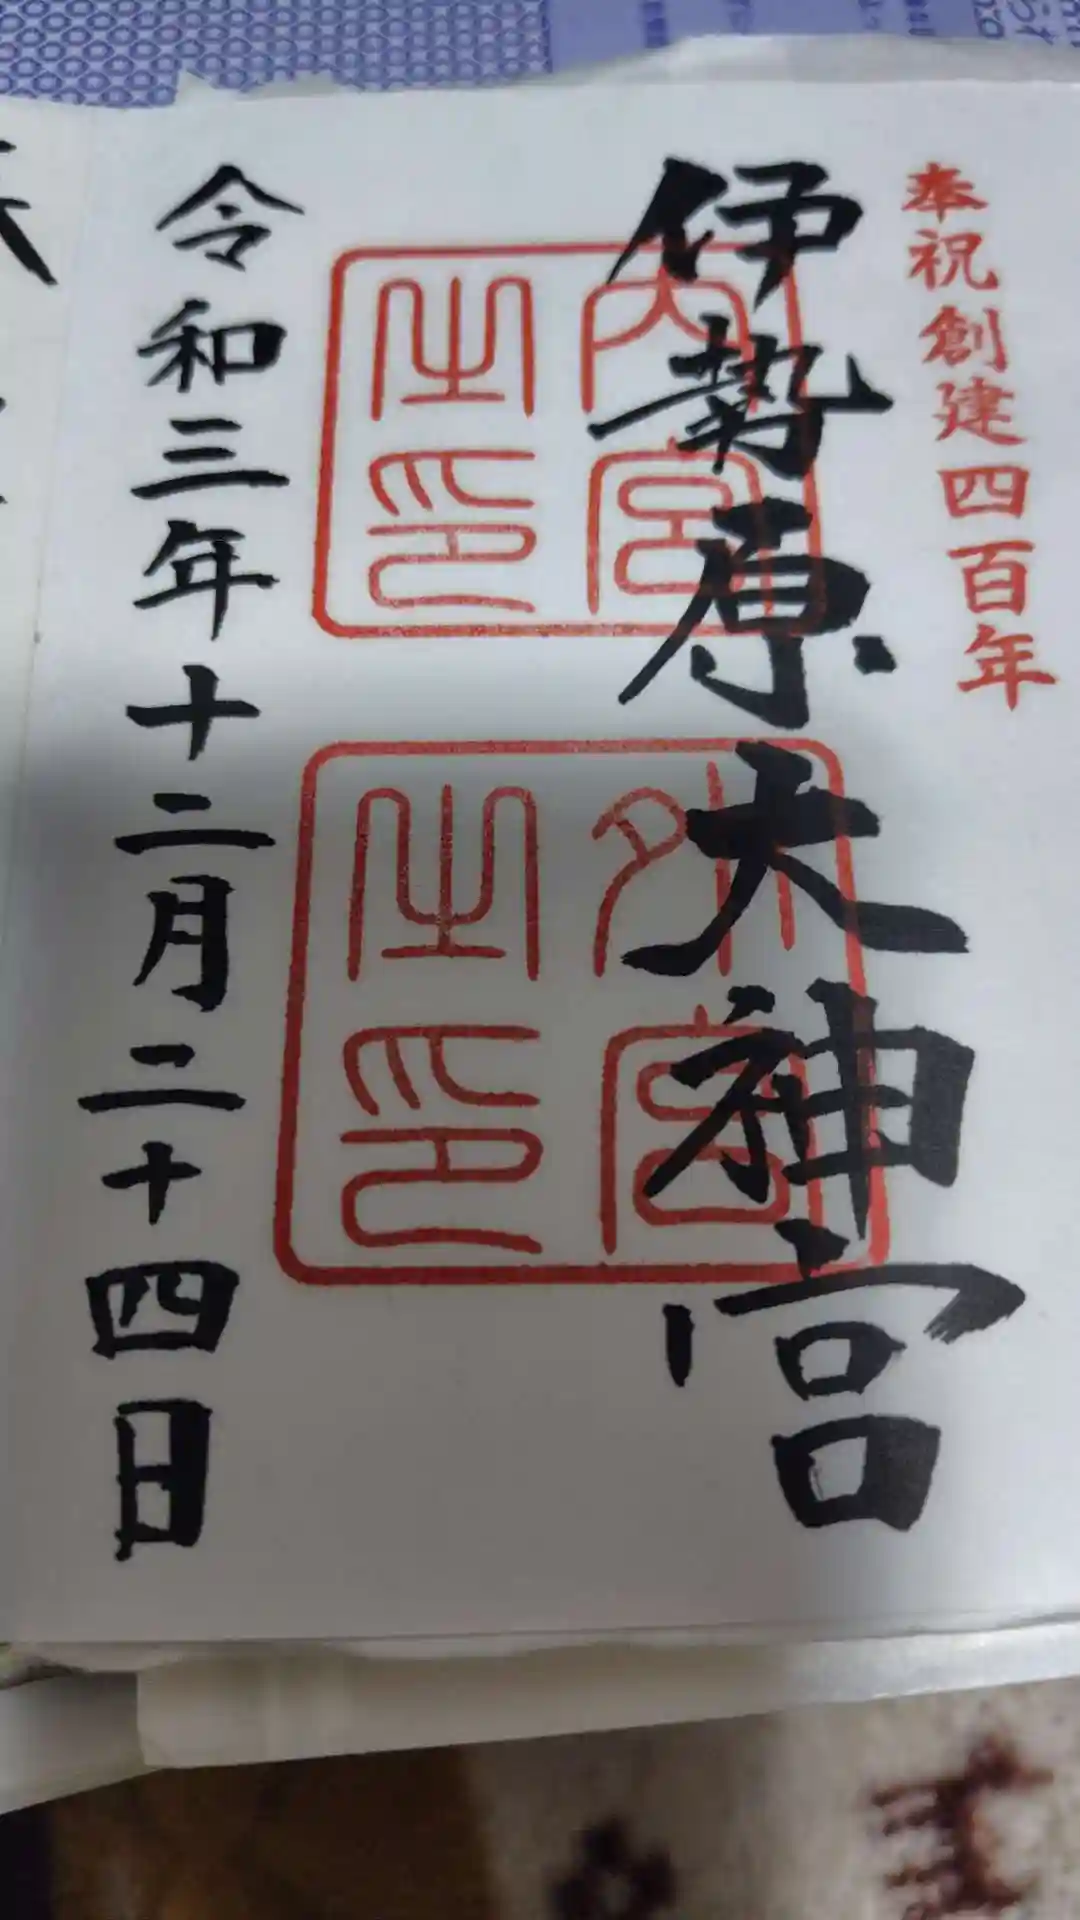 奉祝創建四百年
伊勢原大神宮
内宮之印
外宮之印
令和三年十二月二十四日